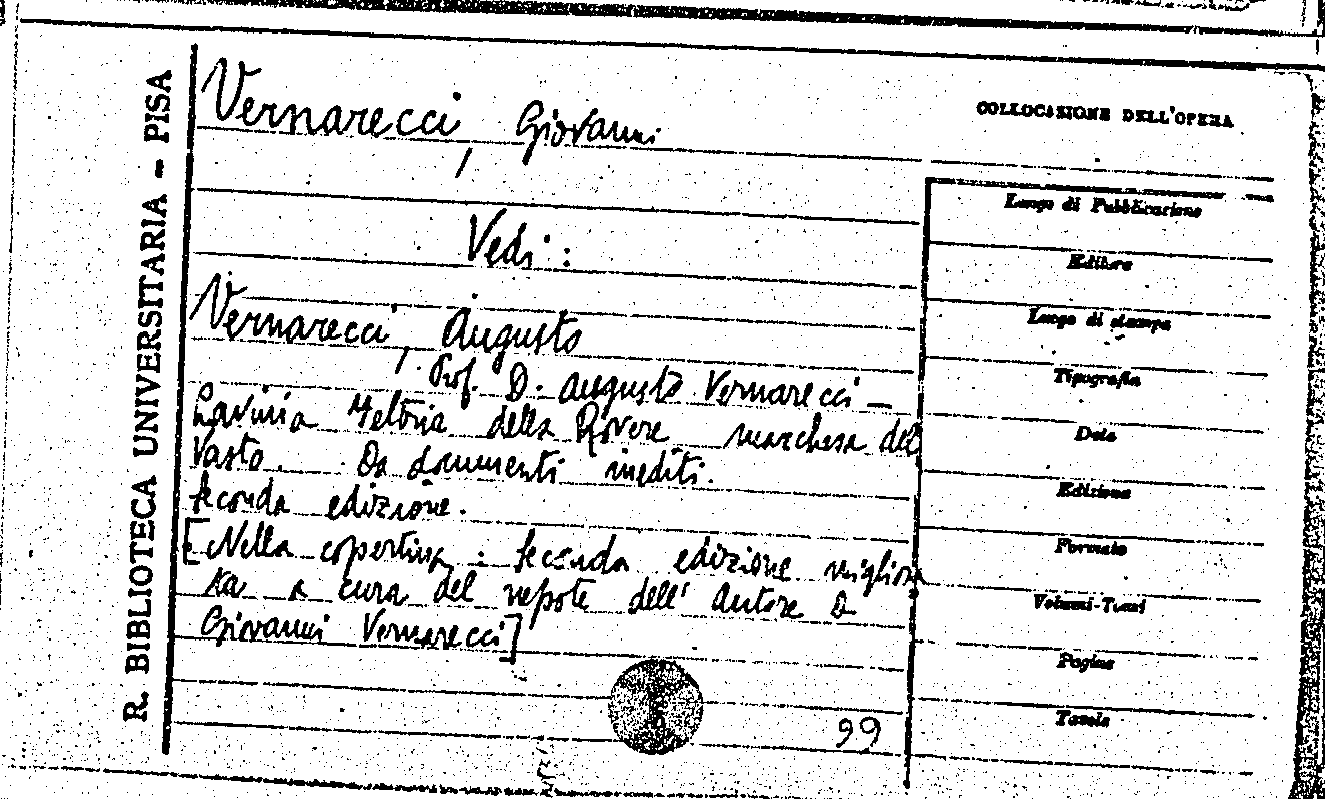 R. BIBLIOTECA UNIVERSITARIA - PISA
Vernarecci, Giovanni
Vedi:
Vernarecci, Augusto
Prof. D. Augusto Vernarecci —
Lavinia Feltria della Rovere marchesa del
Vasto. Da documenti inediti.
Seconda edizione.
[Nella copertina: Seconda edizione migliora
ta a cura del nepote dell' Autore D
Giovanni Vernarecci]
99
COLLOCAZIONE DELL'OPERA
Luogo di Pubblicazione
Editore
Luogo di stampa
Tipografia
Data
Edizione
Formato
Volumi-Tomi
Pagine
Tavole